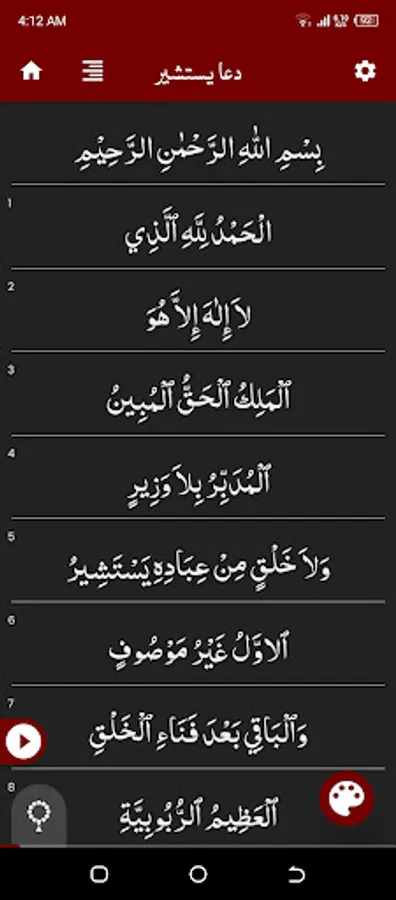 4:12 AM
دعا يستشير
بِسْمِ اللهِ الرَّحْمٰنِ الرَّحِيْمِ
1
الْحَمْدُ لِلَّهِ ٱلَّذِي
2
لاَ إِلٰهَ إِلاَّ هُوَ
3
ٱلْمَلِكُ ٱلْحَقُّ ٱلْمُبِينُ
4
ٱلْمُدَبِّرُ بِلاَ وَزِيرٍ
5
وَلاَ خَلْقٍ مِنْ عِبَادِهِ يَسْتَشِيرُ
6
ٱلاوَّلُ غَيْرُ مَوْصُوفٍ
7
وَٱلْبَاقِي بَعْدَ فَنَاءِ ٱلْخَلْقِ
8
ٱلْعَظِيمُ ٱلرُّبُوبِيَّةِ